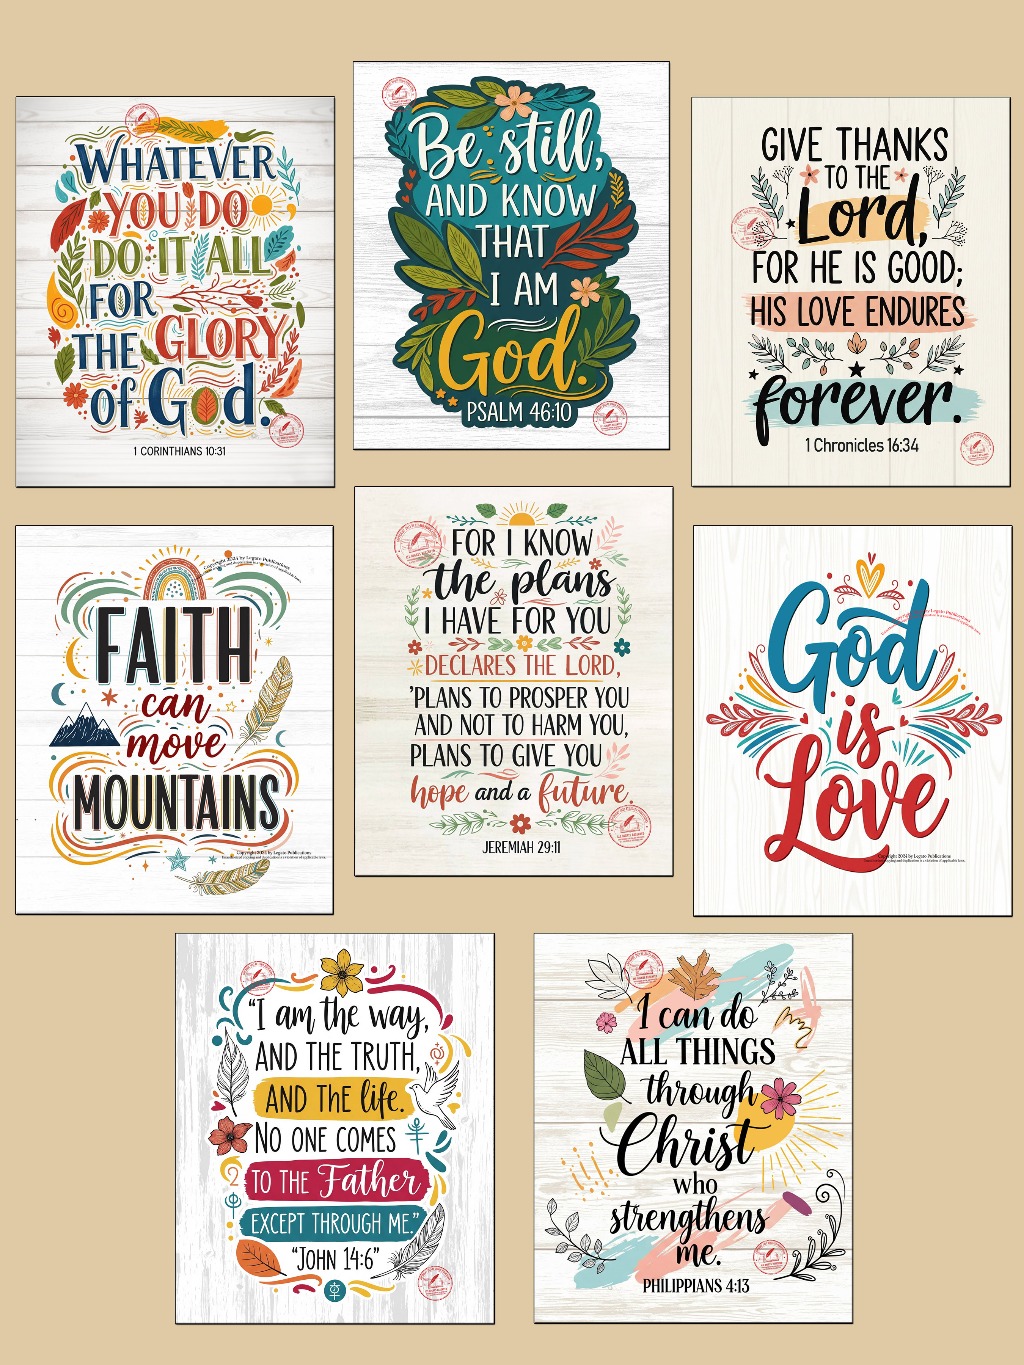 WHATEVER
YOU DO
DO IT ALL
FOR
THE GLORY
of God.
1 CORINTHIANS 10:31
Be still,
AND KNOW
THAT
I AM
God.
PSALM 46:10
GIVE THANKS
TO THE
Lord,
FOR HE IS GOOD;
HIS LOVE ENDURES
forever.
1 Chronicles 16:34
Copyright 2024 by Legato Publications
FAITH
can
move
MOUNTAINS
Copyright 2024 by Legato Publications
FOR I KNOW
the plans
I HAVE FOR YOU
DECLARES THE LORD,
'PLANS TO PROSPER YOU
AND NOT TO HARM YOU,
PLANS TO GIVE YOU
hope and a future.
JEREMIAH 29:11
God
is
Love
Copyright 2024 by Legato Publications
"I am the way,
AND THE TRUTH,
AND THE life.
NO ONE COMES
TO THE Father
EXCEPT THROUGH ME."
"JOHN 14:6"
I can do
ALL THINGS
through
Christ
who
strengthens
me.
PHILIPPIANS 4:13